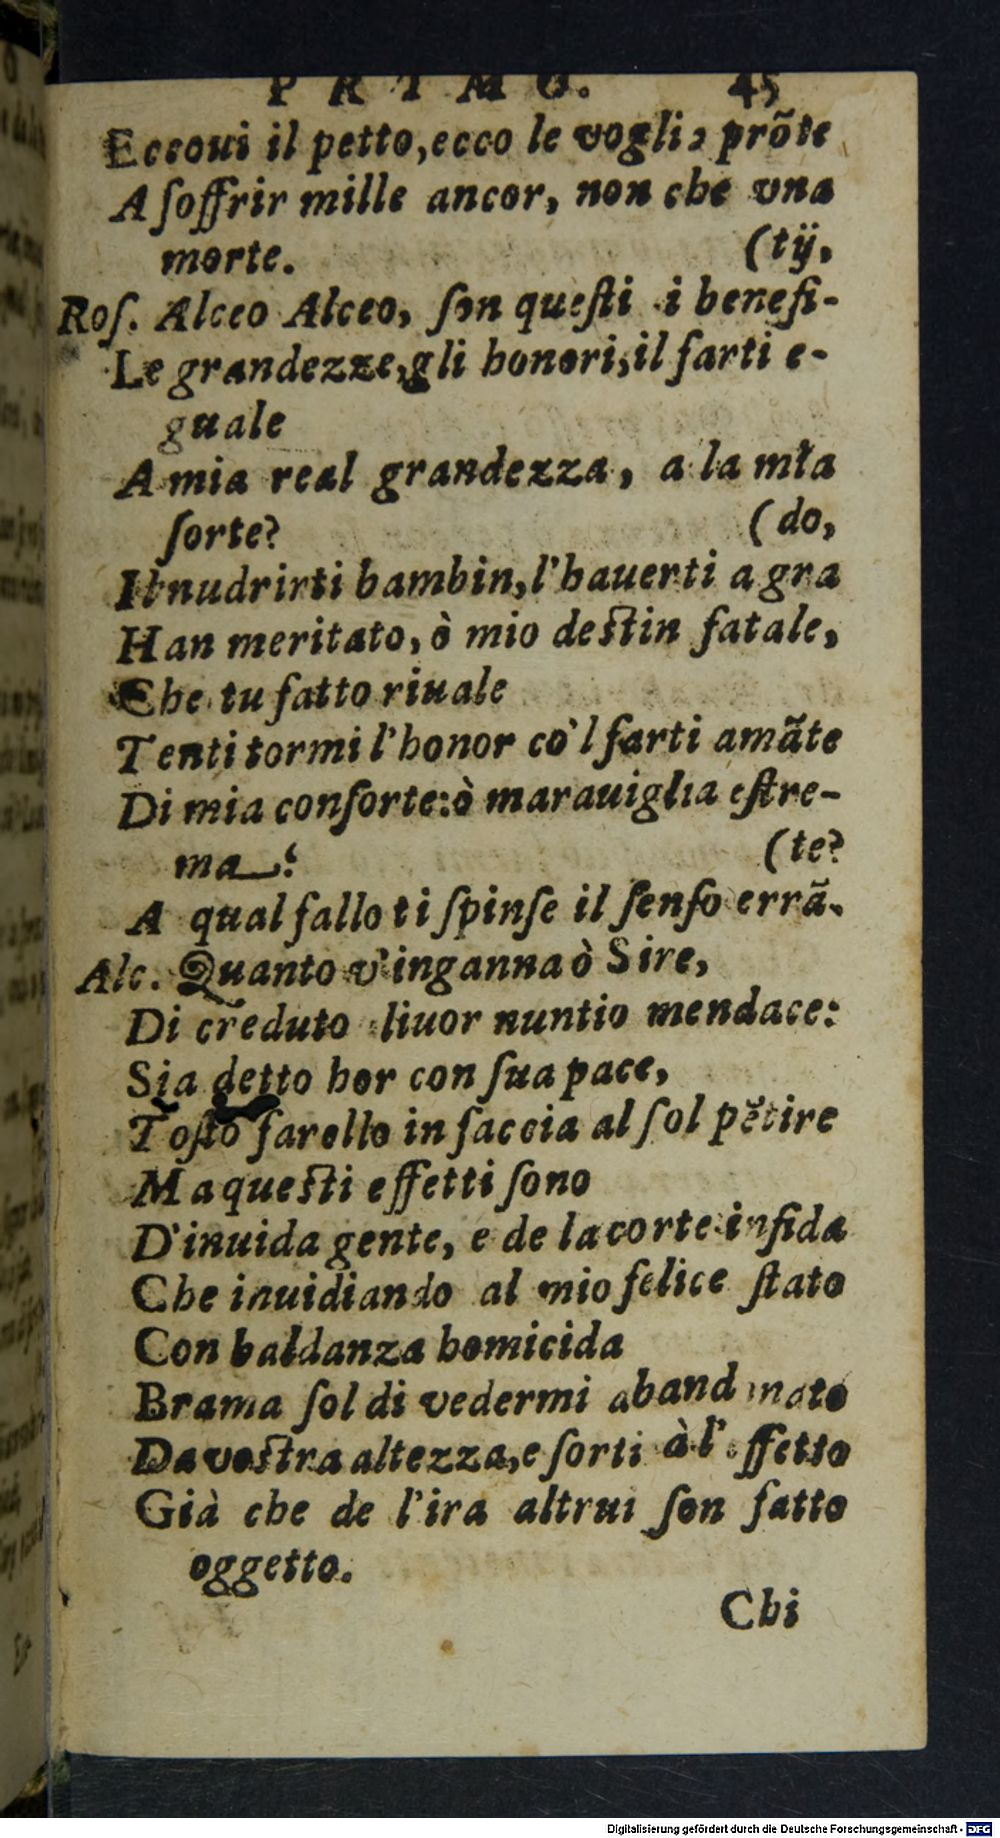 PRIMO. 45
Eccoui il petto, ecco le vogli, prõte
A ſoffrir mille ancor, non che vna
morte. (tij,
Roſ. Alceo Alceo, ſon queſti i benefi-
Le grandezze, gli honori, il farti e-
guale
A mia real grandezza, a la mĩa
ſorte? (do,
Il nudrirti bambin, l'hauerti a gra
Han meritato, ò mio deſtin fatale,
Che tu fatto riuale
Tenti tormi l'honor co'l farti amãte
Di mia conſorte: ò marauiglia eſtre-
ma? (te?
A qual fallo ti ſpinſe il ſenſo errã-
Alc. Quanto v'inganna ò Sire,
Di creduto liuor nuntio mendace:
Sia detto hor con ſua pace,
Toſto farollo in faccia al ſol pẽtire
Ma queſti effetti ſono
D'inuida gente, e de la corte infida
Che inuidiando al mio felice ſtato
Con baldanza homicida
Brama ſol di vedermi aband nato
Da voſtra altezza, e ſorti à l' ffetto
Già che de l'ira altrui ſon fatto
oggetto.
Chi
Digitalisierung gefördert durch die Deutsche Forschungsgemeinschaft - DFG